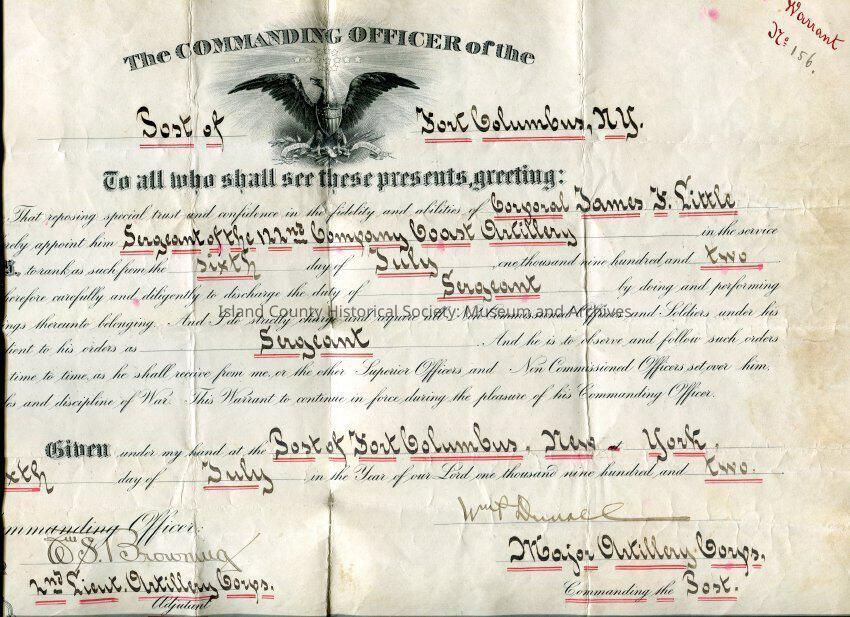 Warrant
No 156.
The COMMANDING OFFICER of the
Post of Fort Columbus, NY.
To all who shall see these presents, greeting:
That reposing special trust and confidence in the fidelity and abilities of Corporal James F. Little
reby appoint him Sergeant of the 122nd Company Coast Artillery in the service
to rank as such from the sixth day of July one thousand nine hundred and two
herefore carefully and diligently to discharge the duty of Sergeant by doing and performing
ngs thereunto belonging. And I do strictly charge and require all Non Commissioned Officers and Soldiers under his
Island County Historical Society: Museum and Archives
dient to his orders as Sergeant And he is to observe and follow such orders
time to time, as he shall receive from me, or the other Superior Officers and Non Commissioned Officers set over him,
les and discipline of War. This Warrant to continue in force during the pleasure of his Commanding Officer.
Given under my hand at the Post of Fort Columbus, New York,
xth day of July in the Year of our Lord one thousand nine hundred and two.
mmanding Officer:
Browning
2nd Lieut. Artillery Corps.
Adjutant
Major Artillery Corps.
Commanding the Post.